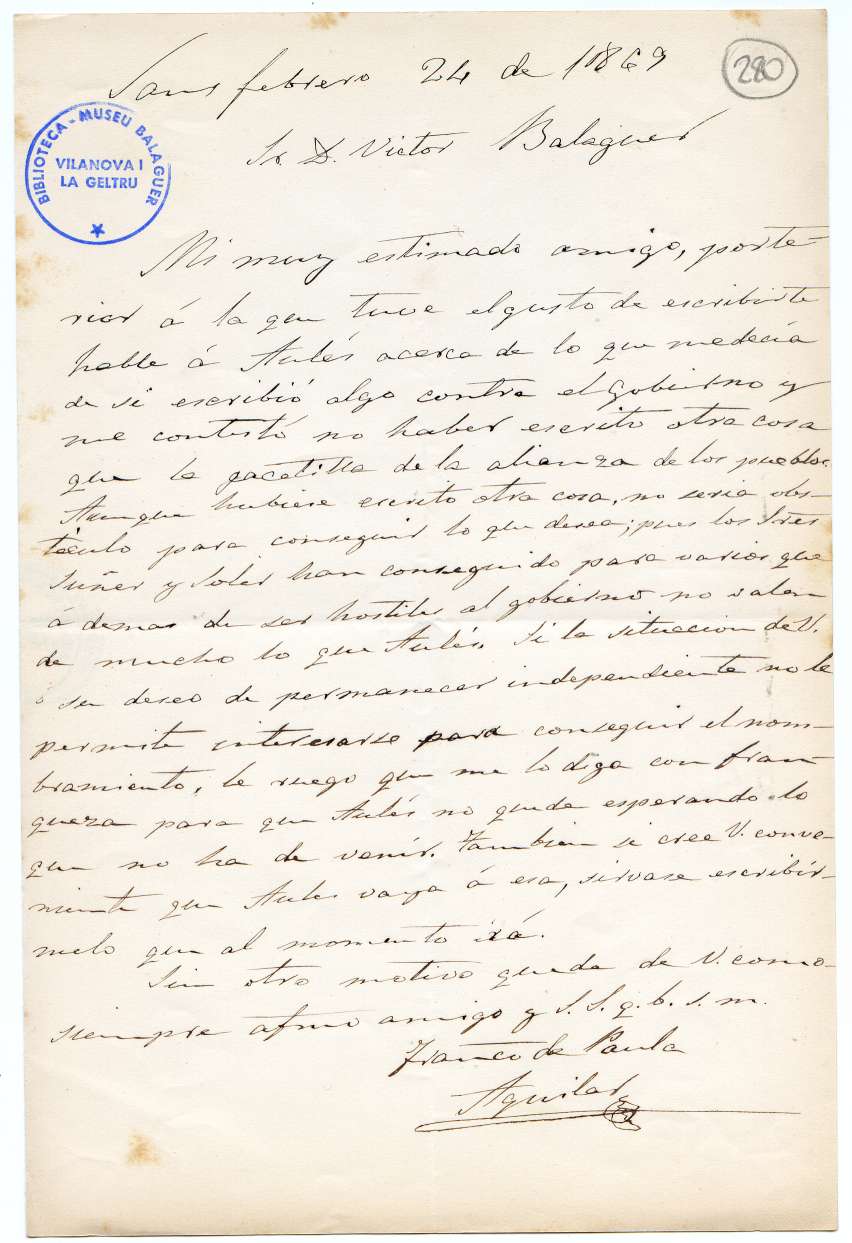 Sans febrero 24 de 1869
280
BIBLIOTECA - MUSEU BALAGUER
VILANOVA I
LA GELTRU
Sr. D. Victor Balaguer
Mi muy estimado amigo, poste-
rior á la que tuve el gusto de escribirte
hable á Aulés acerca de lo que me decia
de si escribió algo contra el gobierno y
me contestó no haber escrito otra cosa
que la gacetilla de la alianza de los pueblos.
Aunque hubiese escrito otra cosa, no seria obs-
táculo para conseguir lo que desea; pues los Sres
Suñer y Soler han conseguido para varios que
á demas de ser hostiles al gobierno no valen
de mucho lo que Aulés. Si la situacion de V.
ó su deseo de permanecer independiente no le
permite interesarse para conseguir el nom-
bramiento, le ruego que me lo diga con fran-
queza para que Aulés no quede esperando lo
que no ha de venir. Tambien si cree V. conve-
niente que Aules vaya á esa, sirvase escribír-
melo que al momento irá.
Sin otro motivo queda de V. como
siempre afmo amigo y S. S. q. b. s. m.
Franco de Paula
Aguilar